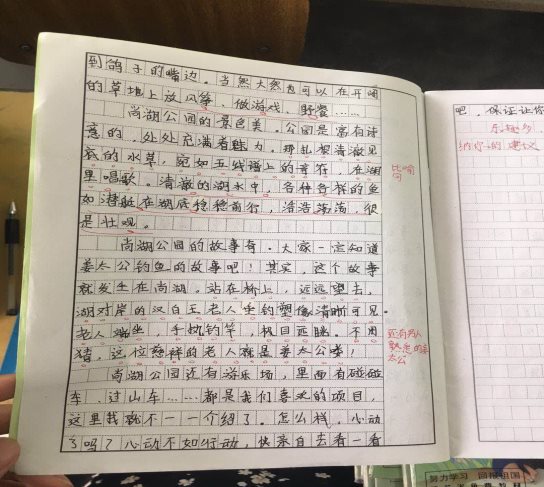 到鸽子的嘴边。当然大然也可以在开阔
的草地上放风筝、做游戏、野餐……
尚湖公园的景色美。公园是富有诗
意的,处处充满着魅力。那乱想清澈见
底的水草,宛如五线谱上的音符,在湖
里唱歌。清澈的湖水中,各种各样的鱼
如潜艇在湖底稳稳前行,浩浩荡荡,很
是壮观。
尚湖公园的故事奇。大家一定知道
姜太公钓鱼的故事吧!其实,这个故事
就发生在尚湖。站在桥上,远远望去,
湖对岸的汉白玉老人垂钓塑像清晰可见。
老人端坐,手执钓竿,极目远眺。不用
猜,这位慈祥的老人就是姜太公喽!
尚湖公园还有游乐场,里面有碰碰
车、过山车……都是我们喜欢的项目,
这里我就不一一介绍了。怎么样,心动
了吗?心动不如行动,快亲自去看一看
比喻句
还有男人
熟悉的姜
太公
吧,保证让你
纳你的建议
努力学习 回报祖国